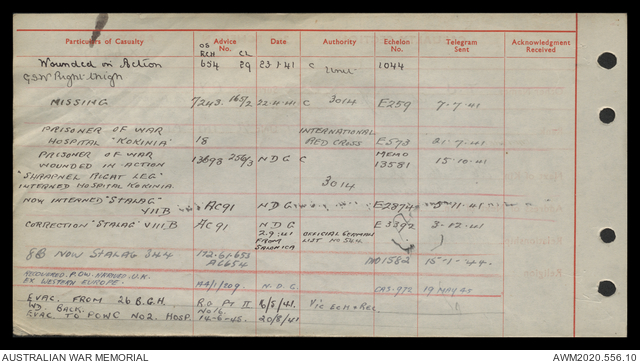 Particulars of Casualty Advice No. Date Authority Echelon No. Telegram Sent Acknowledgment Received
OS RCH CL
Wounded in Action 654 29 23·1·41 C Unit 1044
GSW Right Thigh
MISSING 7243 165/2 22·4·41 C 3014 E259 7·7·41
PRISONER OF WAR INTERNATIONAL
HOSPITAL "KOKINIA" 18 RED CROSS E573 21·7·41
PRISONER OF WAR MEMO
WOUNDED IN ACTION 13693 256/3 NDG C 13581 15·10·41
"SHRAPNEL RIGHT LEG"
INTERNED HOSPITAL KOKINIA. 3014
NOW INTERNED "STALAG" AC91 NDG E2874 5·11·41
VIII B
CORRECTION "STALAG" VIII B AC91 NDG E3392 3·12·41
2.9.41 OFFICIAL GERMAN
FROM LIST No 544.
SALONICA
8B NOW STALAG 344 1582 15·1·44
AC654
RECOVERED P.O.W. ARRIVED U.K. A41/1209 N.D.G. CAS·972 19 MAY 45
EX WESTERN EUROPE.
EVAC. FROM 26 B.G.H. R.O. PT II 16/5/41. Vic Ech & Rec
WD BACK. No 16.
EVAC. TO POWC No2. HOSP. 14-6-45. 20/8/41
AUSTRALIAN WAR MEMORIAL AWM2020.556.10